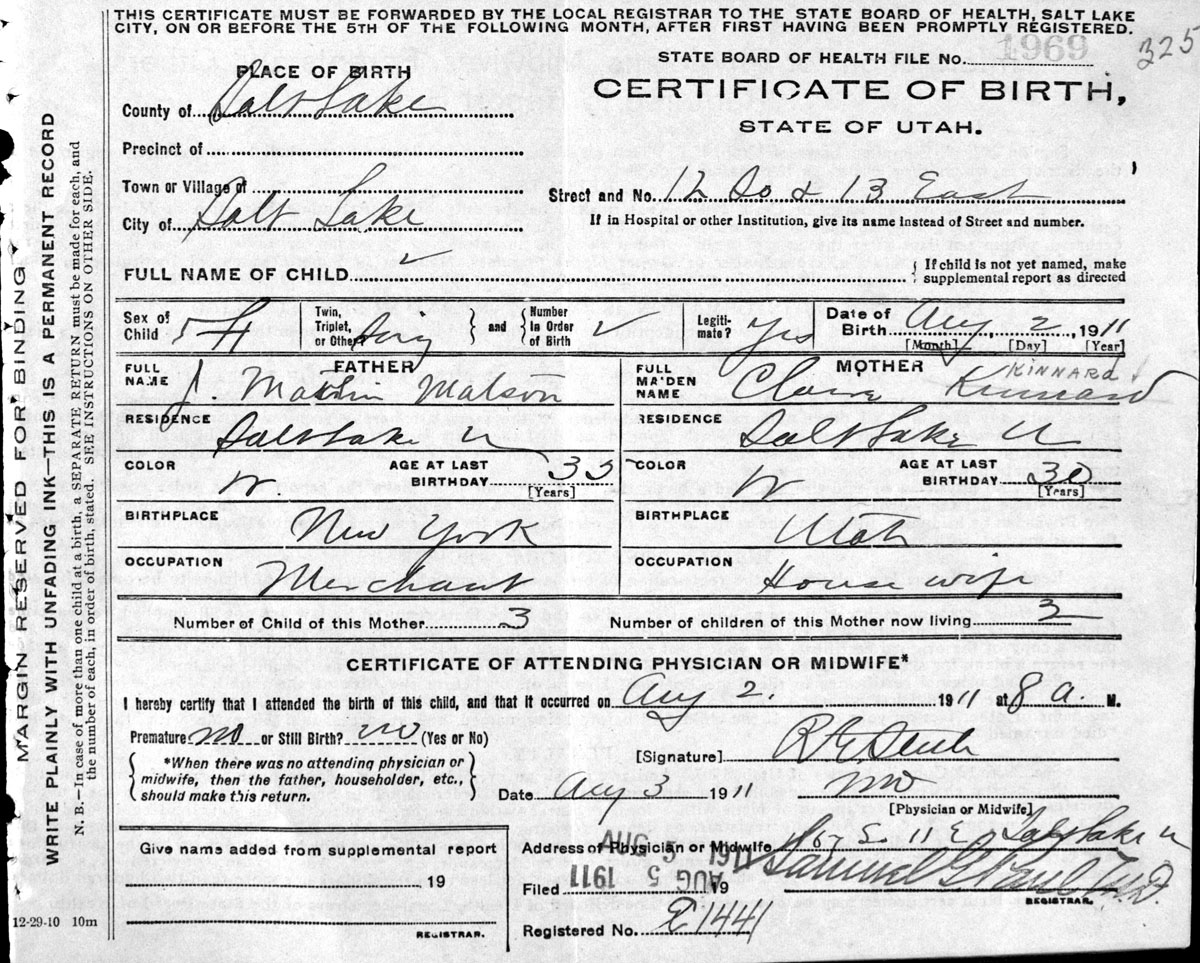 THIS CERTIFICATE MUST BE FORWARDED BY THE LOCAL REGISTRAR TO THE STATE BOARD OF HEALTH, SALT LAKE
CITY, ON OR BEFORE THE 5TH OF THE FOLLOWING MONTH, AFTER FIRST HAVING BEEN PROMPTLY REGISTERED.
325
STATE BOARD OF HEALTH FILE No. 1969
PLACE OF BIRTH
CERTIFICATE OF BIRTH,
County of Salt Lake
STATE OF UTAH.
Precinct of
Town or Village of
Street and No. 12 So & 13 East
City of Salt Lake
If in Hospital or other Institution, give its name instead of Street and number.
FULL NAME OF CHILD
If child is not yet named, make
supplemental report as directed
Sex of Child
Twin, Triplet, or Other
and
Number in Order of Birth
Legitimate? Yes
Date of Birth Aug 2, 1911
[Month] [Day] [Year]
FATHER
FULL NAME J. Matson
RESIDENCE Salt Lake U
COLOR W.
AGE AT LAST BIRTHDAY 35
[Years]
BIRTHPLACE New York
OCCUPATION Merchant
MOTHER
FULL MAIDEN NAME Kinnard
KINNARD
RESIDENCE Salt Lake U
COLOR W
AGE AT LAST BIRTHDAY 30
[Years]
BIRTHPLACE Utah
OCCUPATION House wife
Number of Child of this Mother 3
Number of children of this Mother now living 3
CERTIFICATE OF ATTENDING PHYSICIAN OR MIDWIFE*
I hereby certify that I attended the birth of this child, and that it occurred on Aug 2. 1911 at 8 a. M.
Premature? no or Still Birth? no (Yes or No)
[Signature]
*When there was no attending physician or
midwife, then the father, householder, etc.,
should make this return.
Date Aug 3 1911
MD
[Physician or Midwife]
Give name added from supplemental report
19
REGISTRAR.
Address of Physician or Midwife S. 11 E Salt Lake U
Filed AUG 5 1911 19
Samuel G. Paul M.D.
REGISTRAR.
Registered No. E1441
12-29-10 10m
MARGIN RESERVED FOR BINDING
WRITE PLAINLY WITH UNFADING INK—THIS IS A PERMANENT RECORD
N. B.—In case of more than one child at a birth, a SEPARATE RETURN must be made for each, and
the number of each, in order of birth, stated. SEE INSTRUCTIONS ON OTHER SIDE.